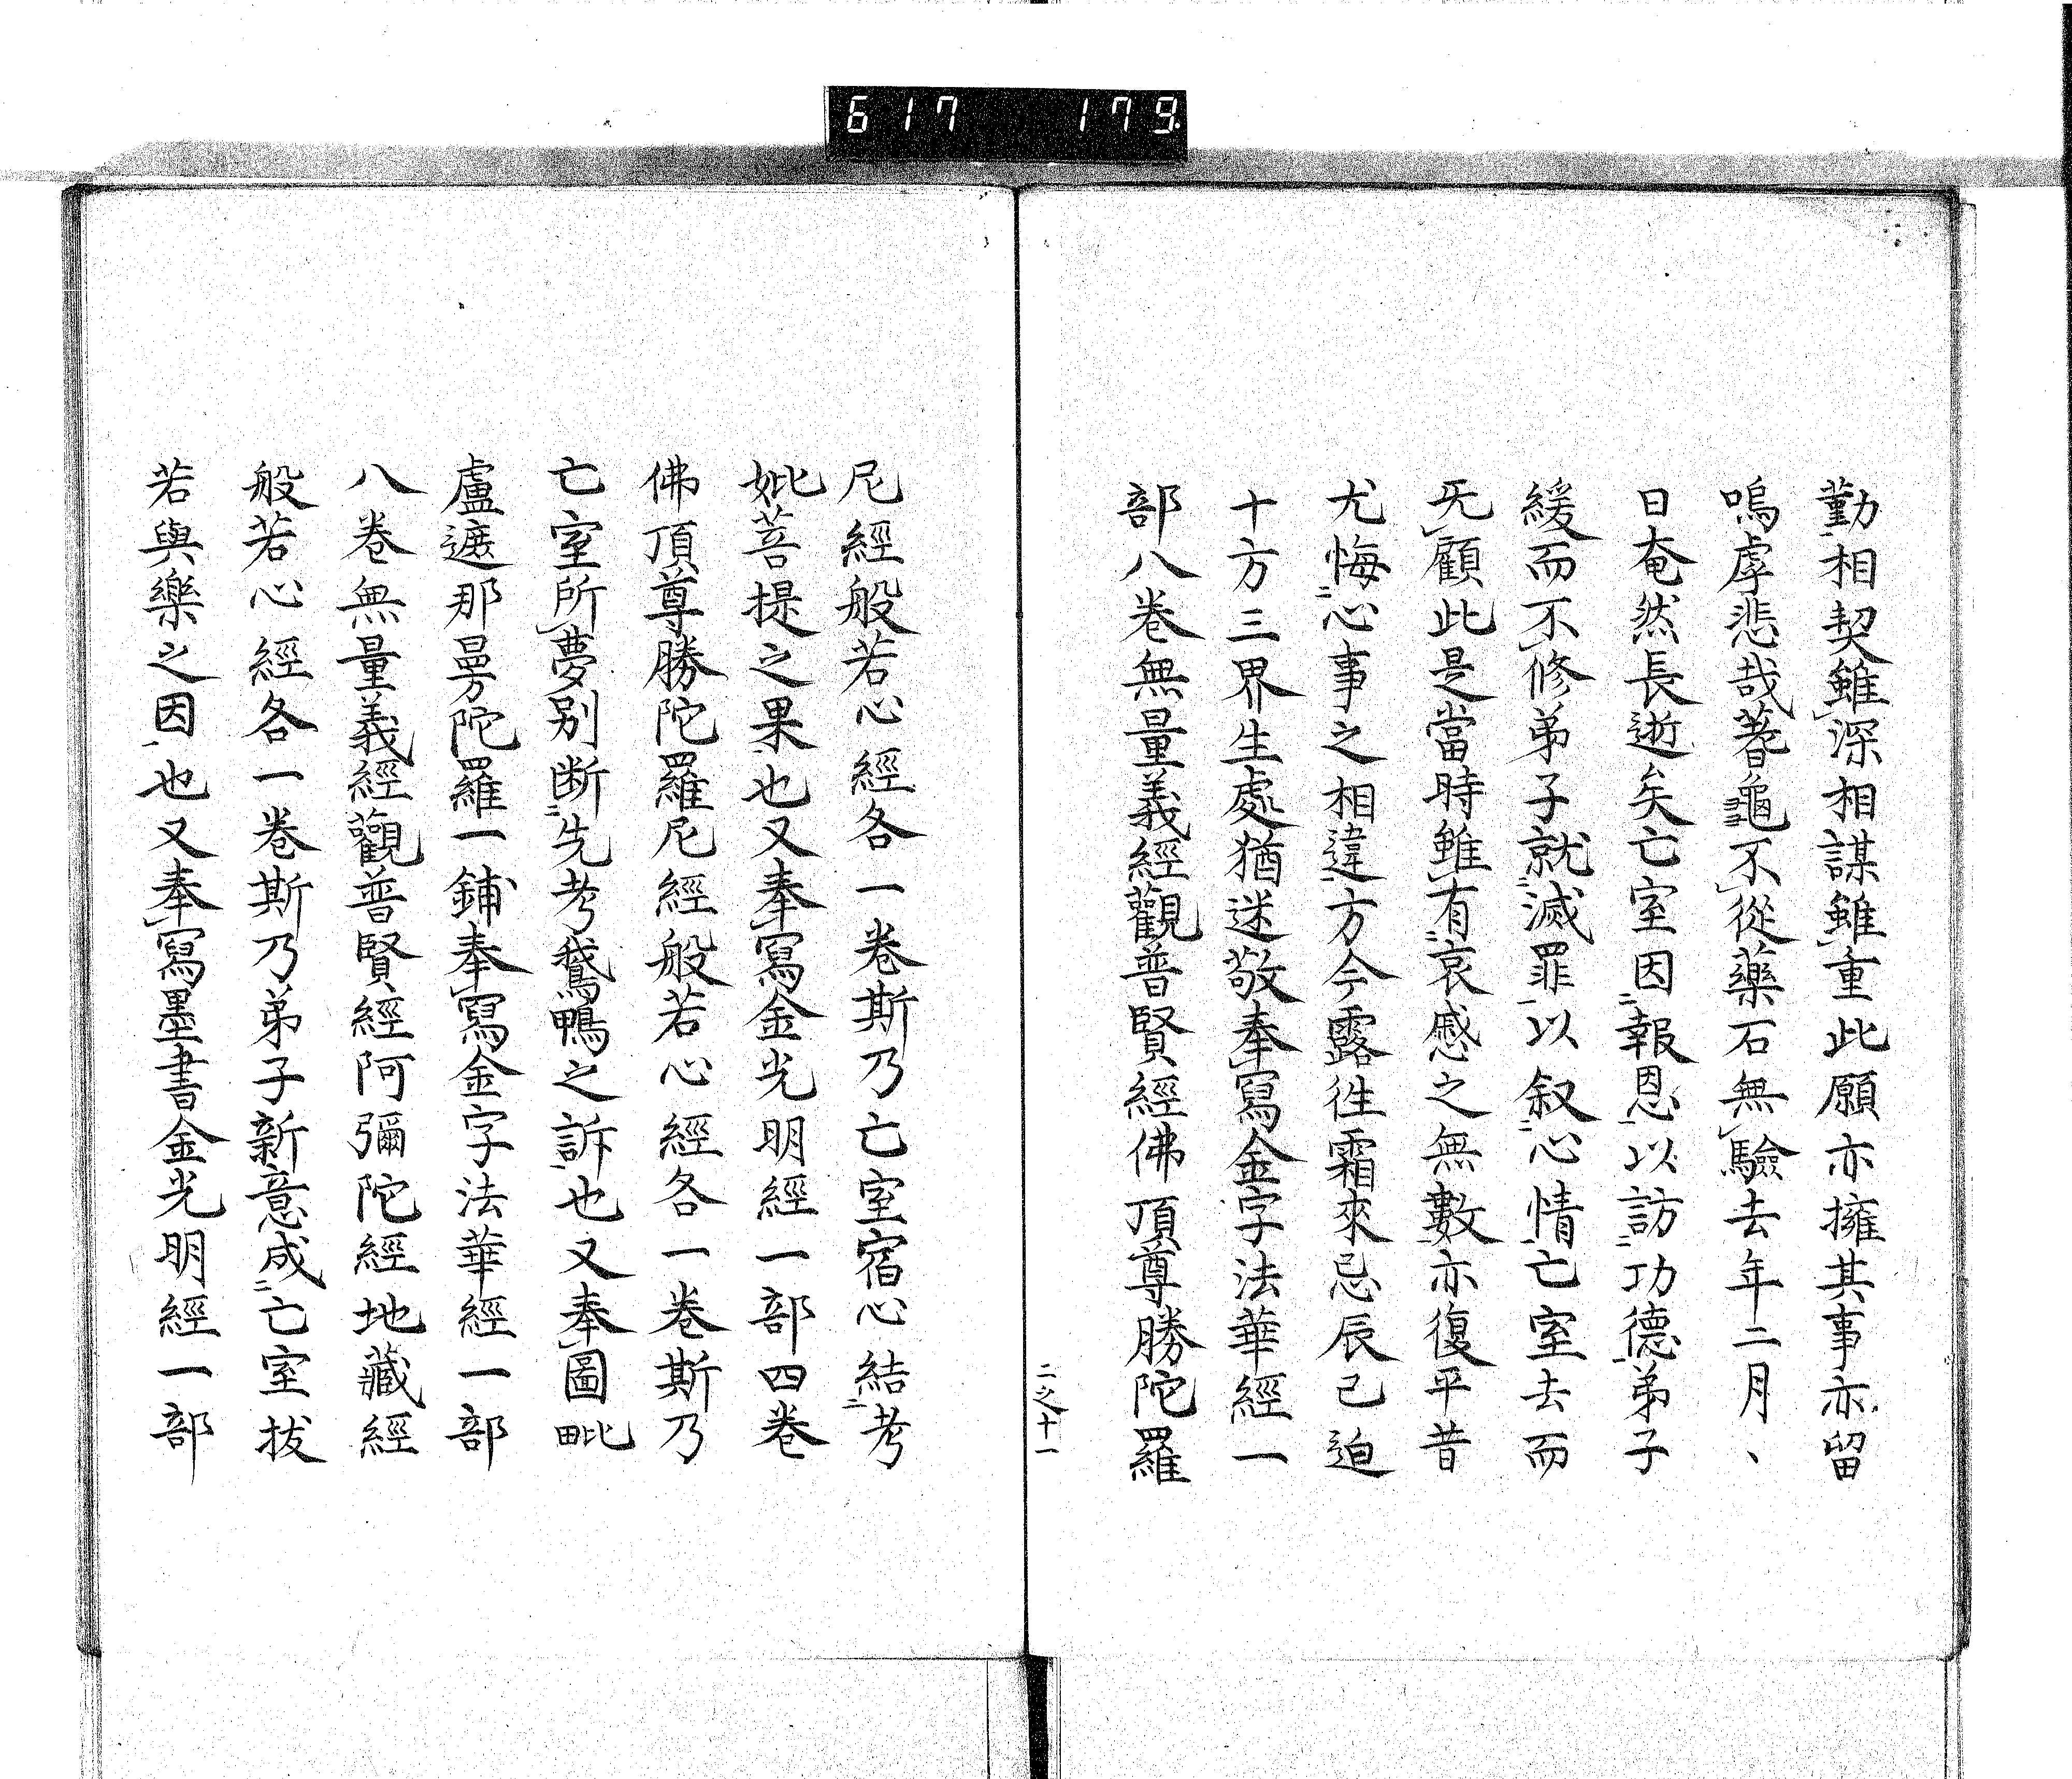 617 179
勤相契雖深相謀雖重此願亦擁其事亦留
嗚虖悲哉蓍龜不從藥石無驗去年二月、
日奄然長逝矣亡室因報恩以訪功德弟子
緩而不修弟子就滅罪以叙心情亡室去而
旡顧此是當時雖有哀慼之無數亦復平昔
尤悔心事之相違方今露徃霜來忌辰已迫
十方三界生處猶迷敬奉寫金字法華經一
部八卷無量義經觀普賢經佛頂尊勝陀羅
二之十一
尼經般若心經各一卷斯乃亡室宿心結考
妣菩提之果也又奉寫金光明經一部四卷
佛頂尊勝陀羅尼經般若心經各一卷斯乃
亡室所夢別断先考鵞鴨之訴也又奉圖毗
盧遮那曼陀羅一鋪奉寫金字法華經一部
八卷無量義經觀普賢經阿彌陀經地藏經
般若心經各一卷斯乃弟子新意成亡室拔
若與樂之因也又奉寫墨書金光明經一部